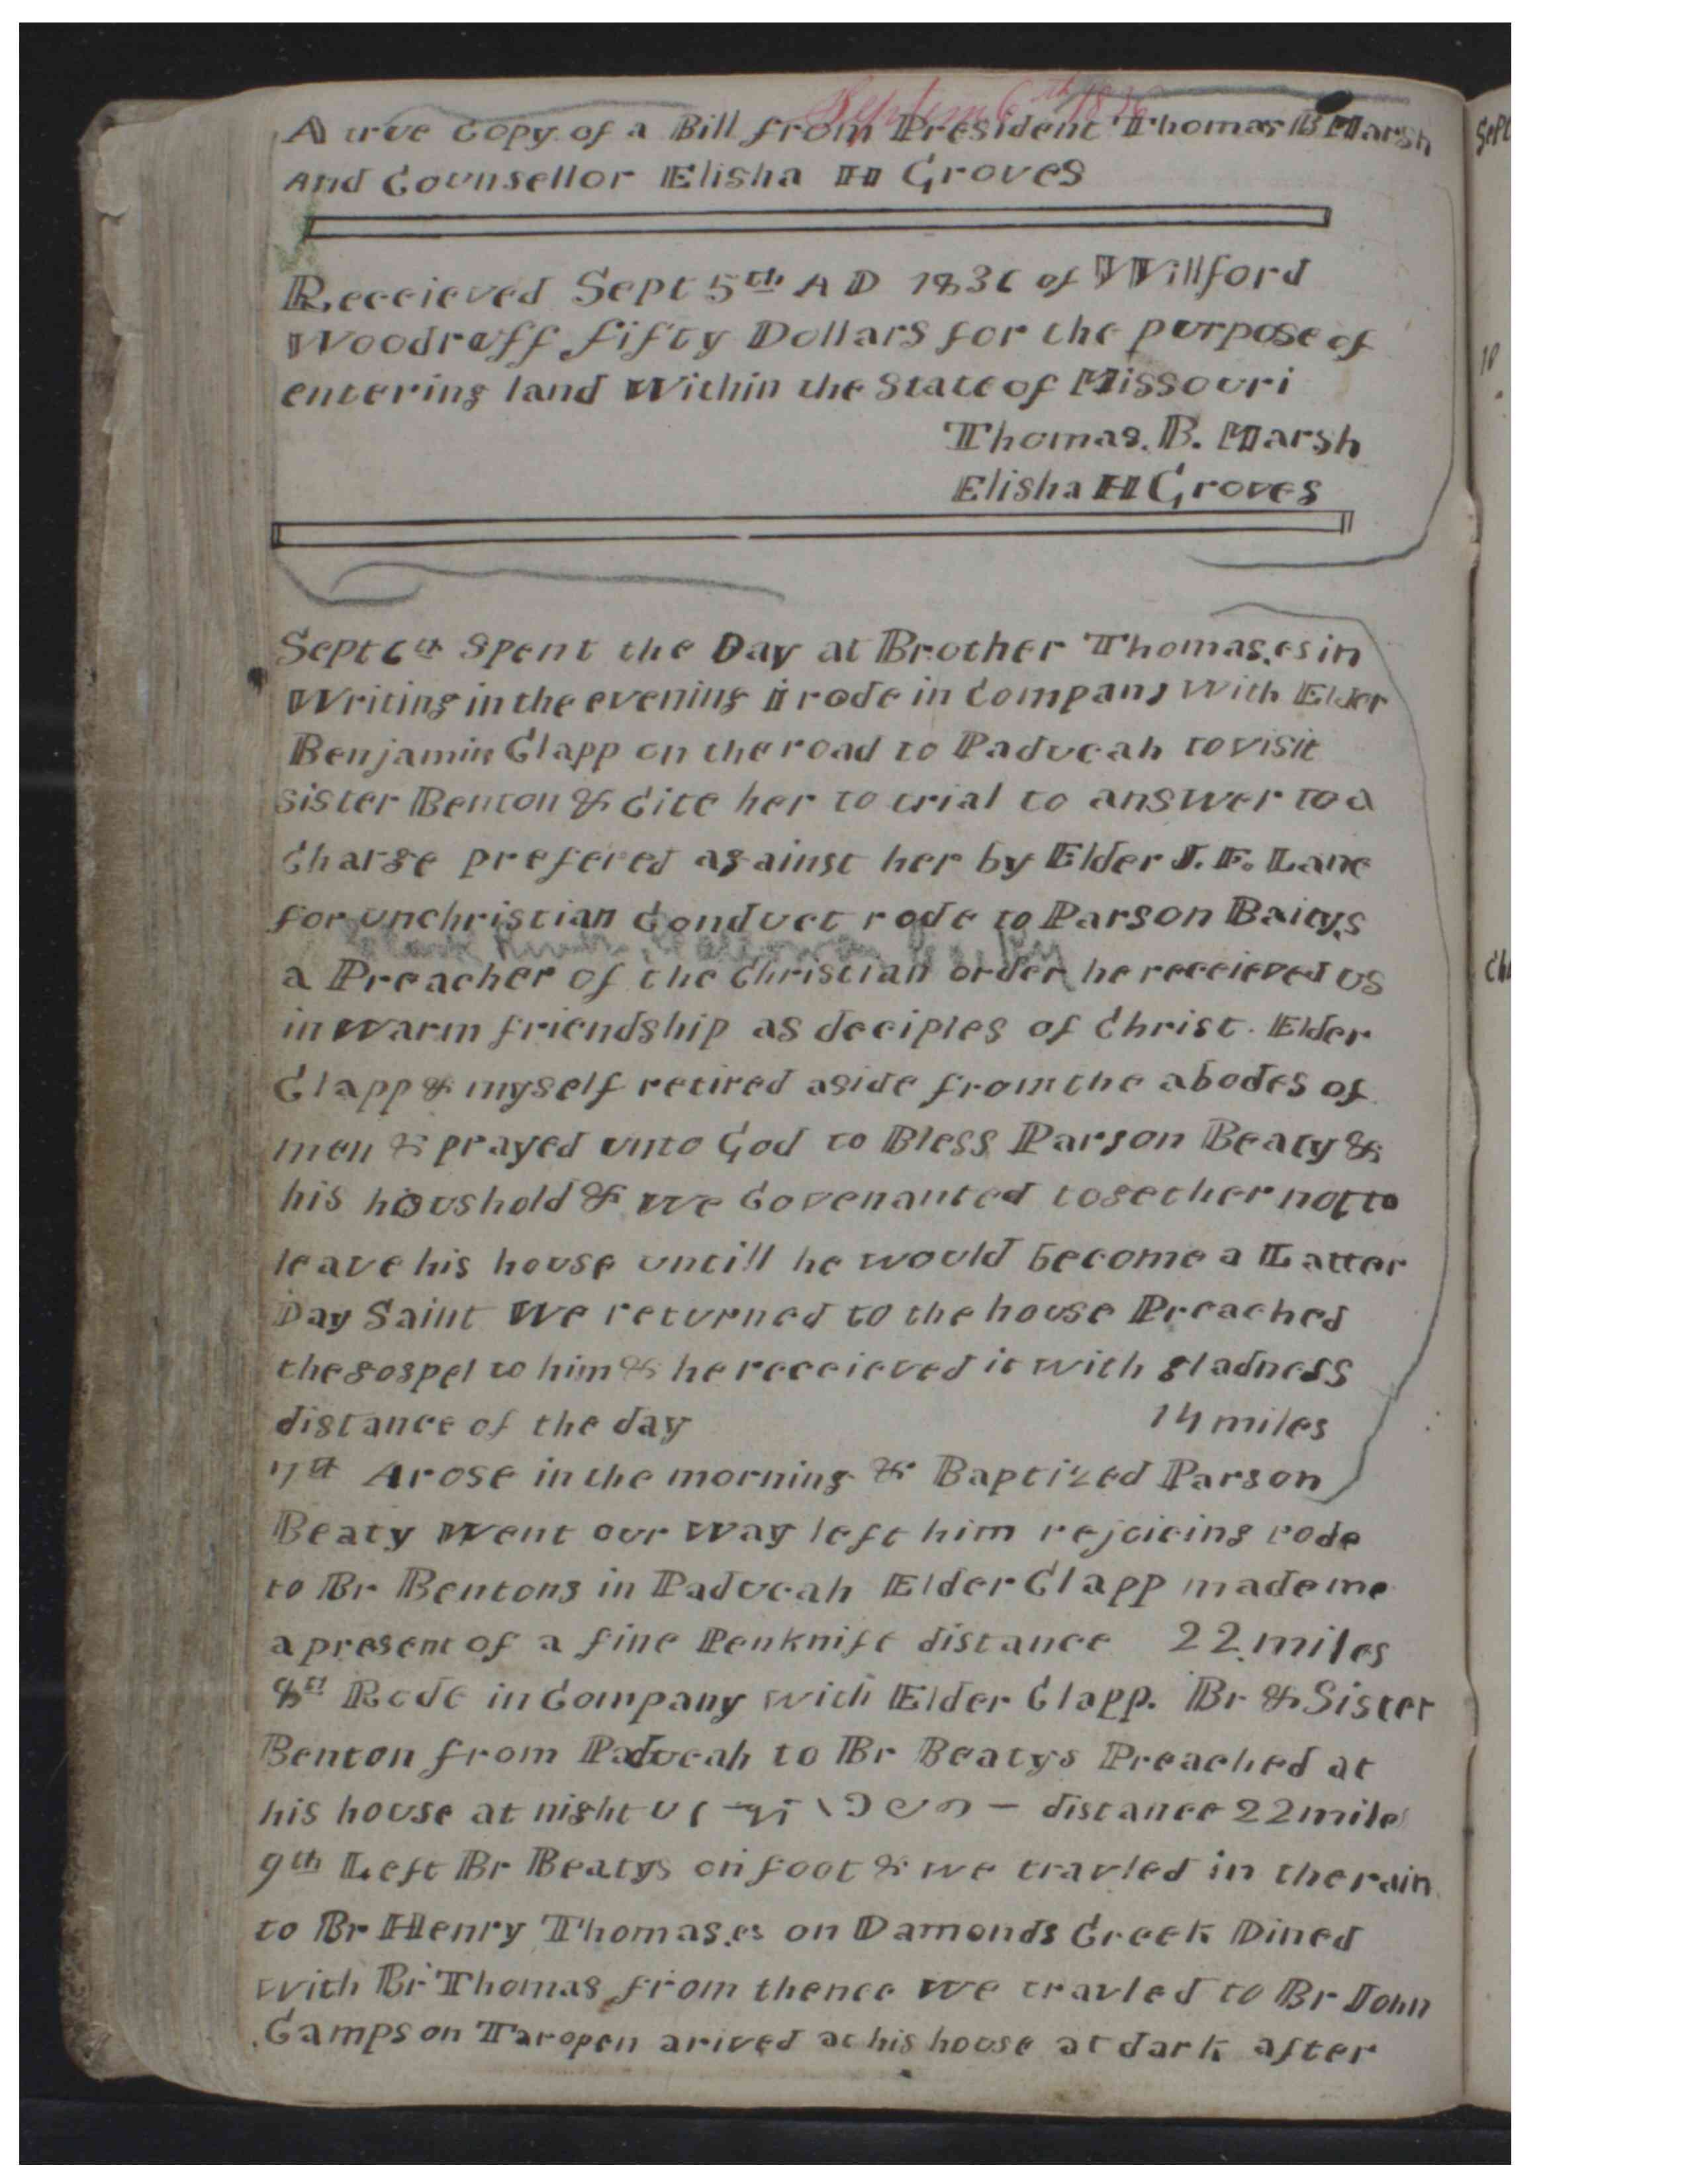 Septem 6th 1836
A true Copy of a Bill from President Thomas B Marsh
And Counsellor Elisha H Groves
Receieved Sept 5th A D 1836 of Willford
Woodruff fifty Dollars for the purpose of
entering land Within the State of Missouri
Thomas. B. Marsh
Elisha H Groves
Sept 6th Spent the Day at Brother Thomas.es in
Writing in the evening i rode in Company With Elder
Benjamin Clapp on the road to Paducah to visit
sister Benton & Cite her to trial to answer to a
Charge prefered against her by Elder J. F. Lane
for unchristian Conduct rode to Parson Baitys
a Preacher of the Christian order he receieved us
in warm friendship as deciples of Christ. Elder
Clapp & myself retired aside from the abodes of
men & prayed unto God to Bless Parson Beaty &
his houshold & we Covenanted together not to
leave his house untill he would become a Latter
Day Saint We returned to the house Preached
the gospel to him & he receieved it with gladness
distance of the day 14 miles
7th Arose in the morning & Baptized Parson
Beaty Went our way left him rejoicing rode
to Br Bentons in Paducah Elder Clapp made me
a present of a fine Penknife distance 22 miles
8th Rode in Company with Elder Clapp. Br & Sister
Benton from Paducah to Br Beatys Preached at
his house at night distance 22 mile
9th Left Br Beatys on foot & we travled in the rain
to Br Henry Thomas.es on Damonds Creek Dined
with Br Thomas from thence we travled to Br John
Camps on Taropen arived at his house at dark after
Sept
10